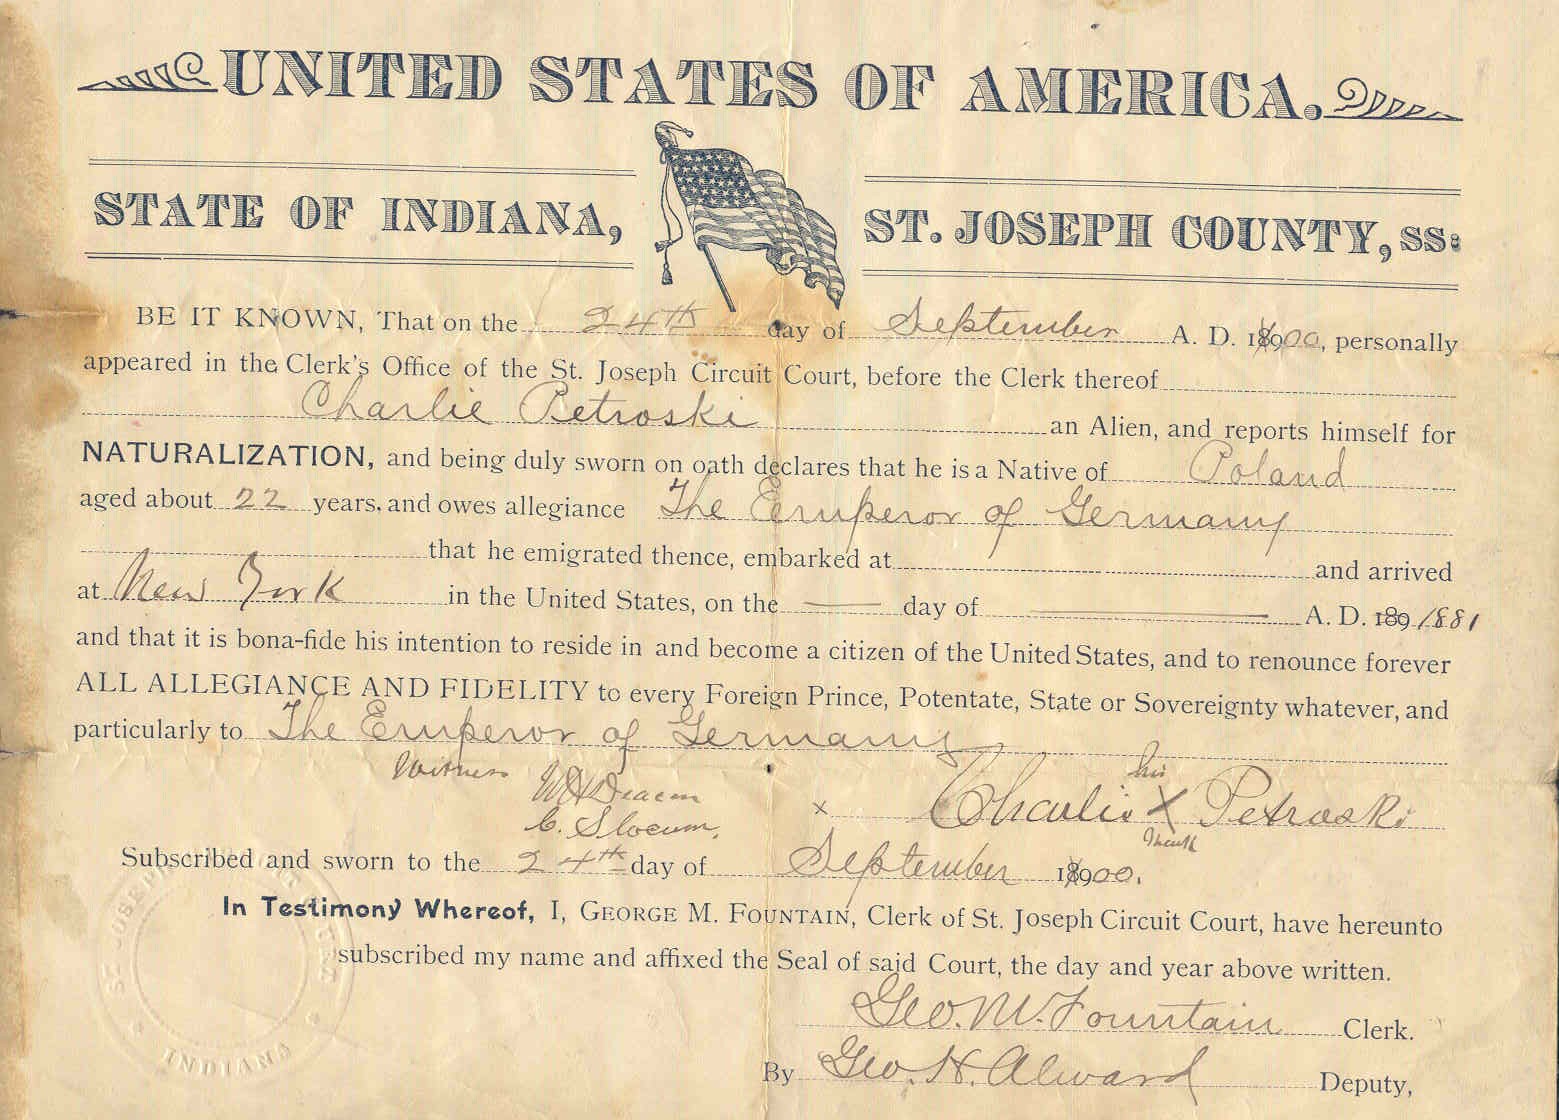 UNITED STATES OF AMERICA.
STATE OF INDIANA, ST. JOSEPH COUNTY, SS:
BE IT KNOWN, That on the 24th day of September A. D. 18900, personally
appeared in the Clerk's Office of the St. Joseph Circuit Court, before the Clerk thereof
Charlie Petroski an Alien, and reports himself for
NATURALIZATION, and being duly sworn on oath declares that he is a Native of Poland
aged about 22 years, and owes allegiance The Eemperor of Germany
that he emigrated thence, embarked at and arrived
at New York in the United States, on the — day of — A. D. 189 1881
and that it is bona-fide his intention to reside in and become a citizen of the United States, and to renounce forever
ALL ALLEGIANCE AND FIDELITY to every Foreign Prince, Potentate, State or Sovereignty whatever, and
particularly to The Emperor of Germany
Witness W H Deacon
C. Slocum.
his
x Charlie X Petroski
mark
Subscribed and sworn to the 24th day of September 18900.
In Testimony Whereof, I, GEORGE M. FOUNTAIN, Clerk of St. Joseph Circuit Court, have hereunto
subscribed my name and affixed the Seal of said Court, the day and year above written.
Geo. M. Fountain Clerk.
By Geo. H. Alward Deputy,
ST. JOSEPH
INDIANA